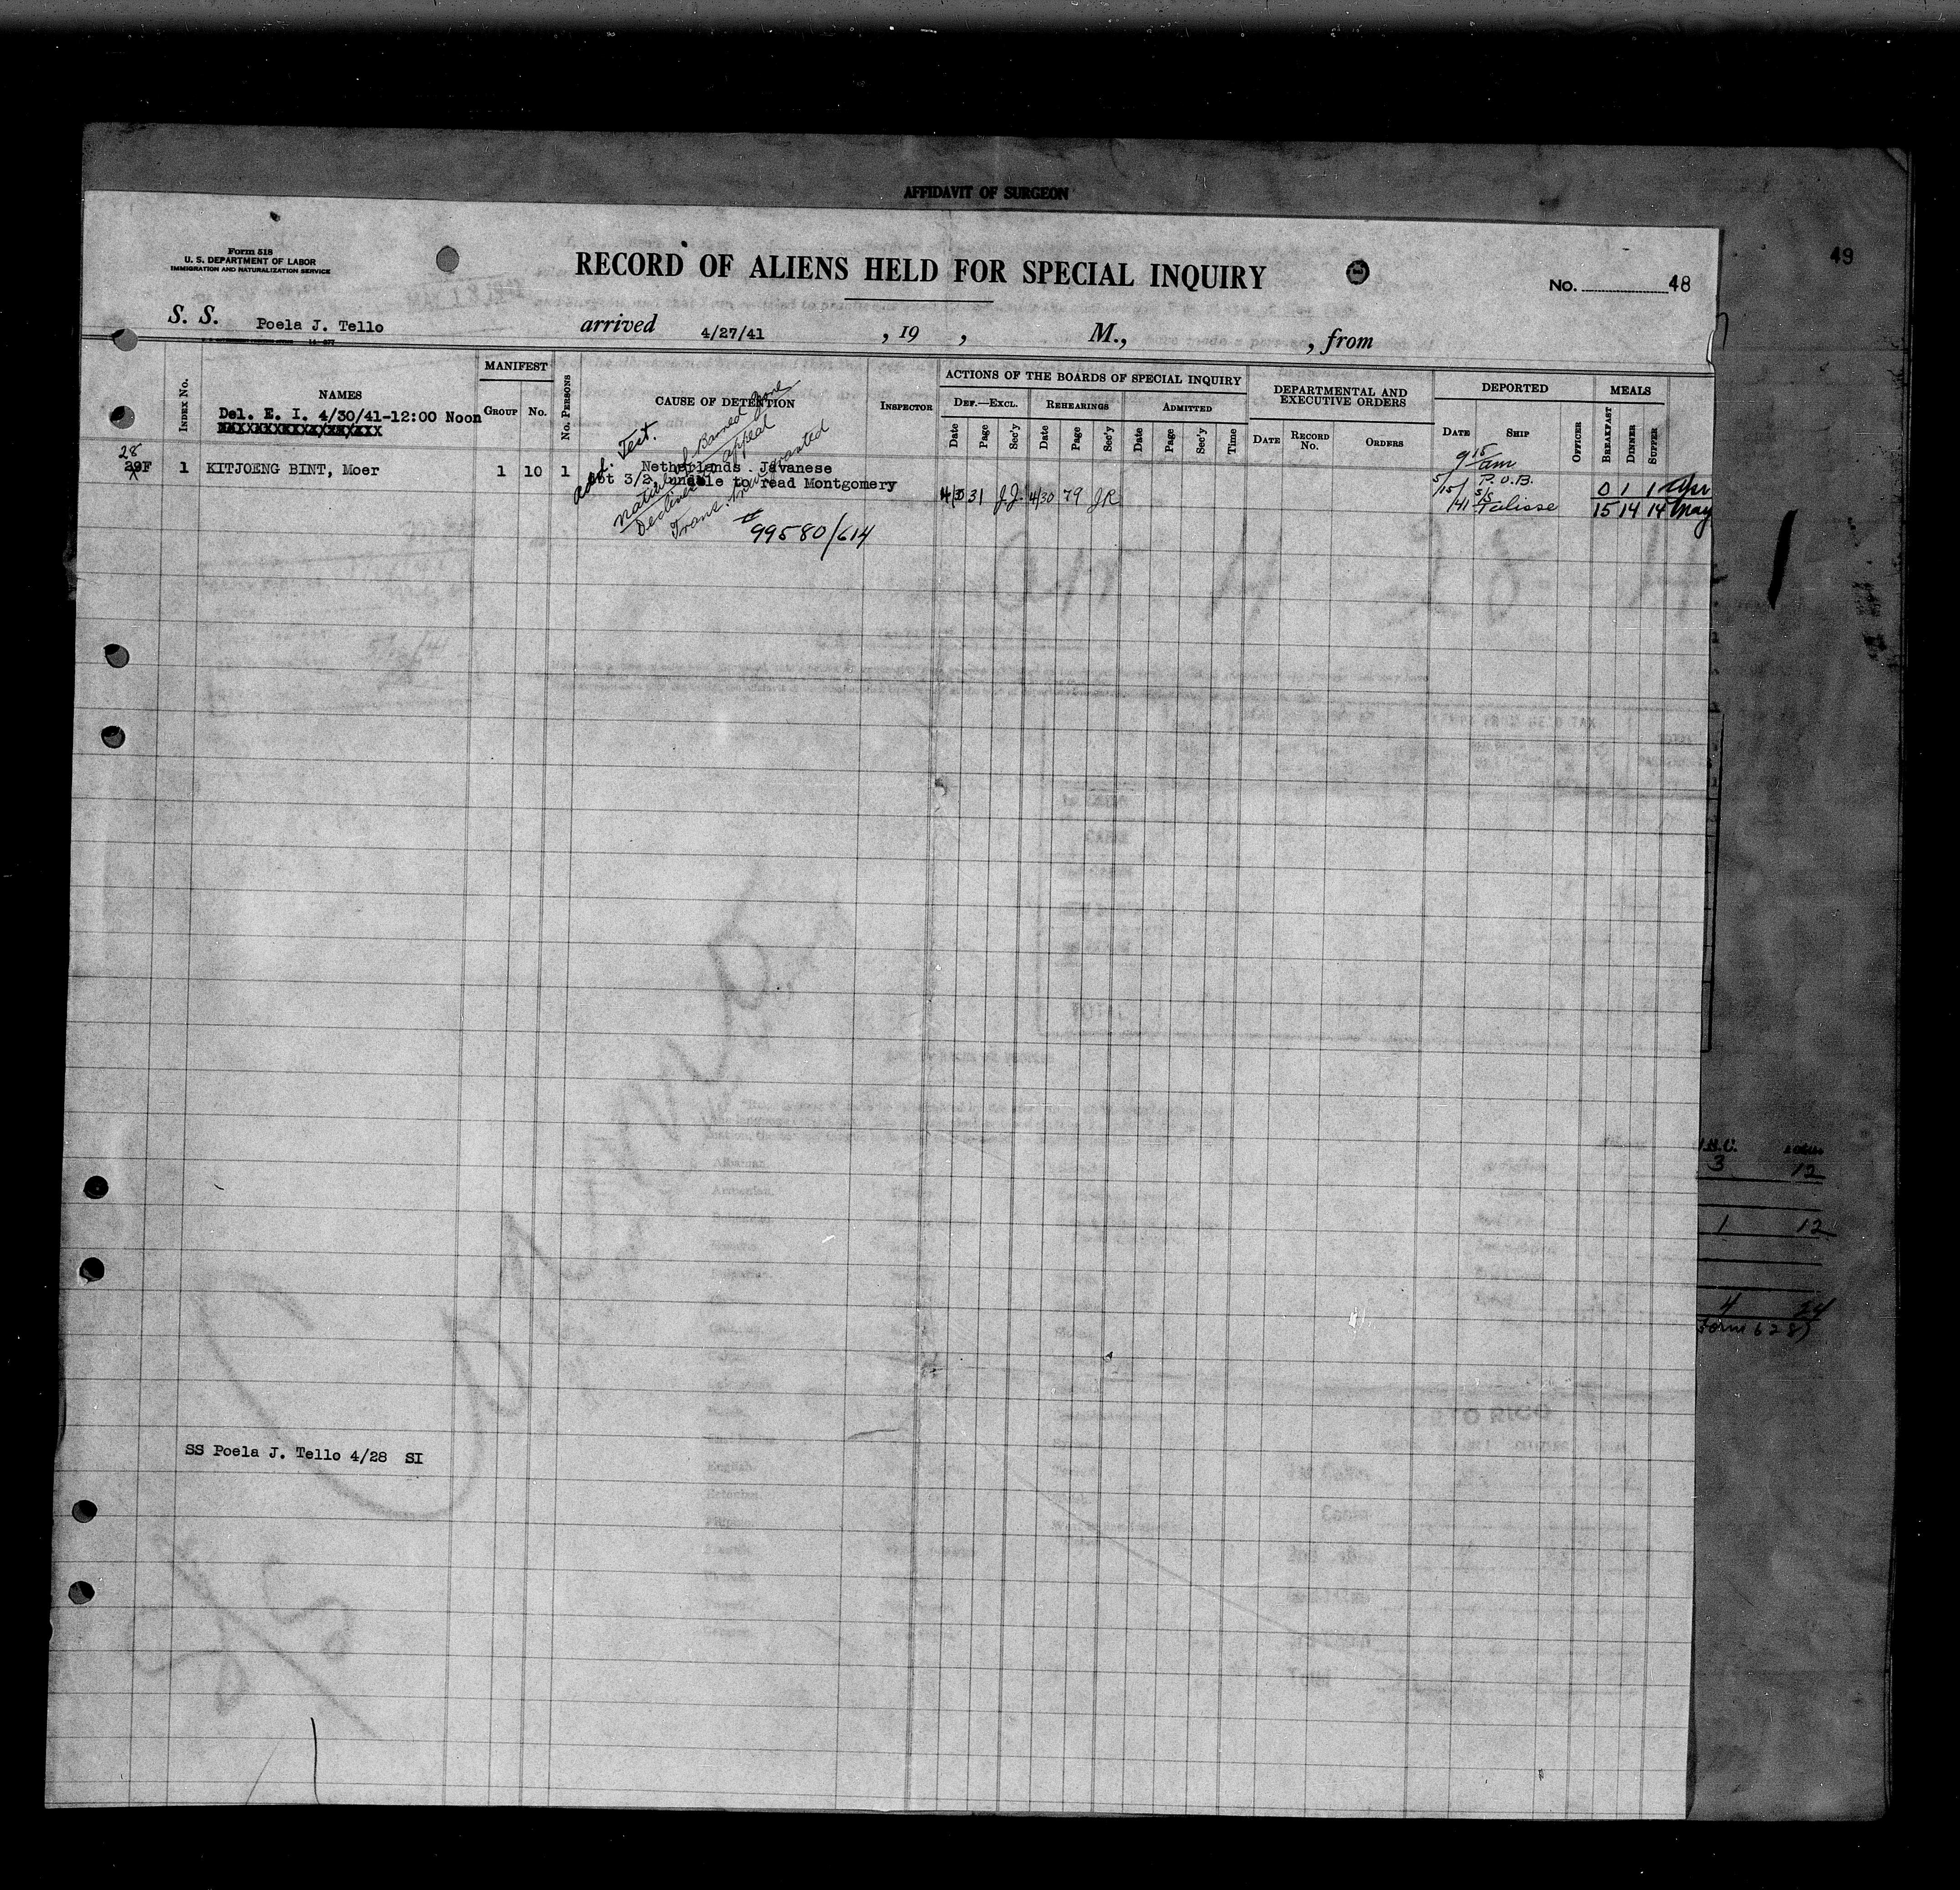 AFFIDAVIT OF SURGEON
49
Form 518
U. S. DEPARTMENT OF LABOR
IMMIGRATION AND NATURALIZATION SERVICE
RECORD OF ALIENS HELD FOR SPECIAL INQUIRY
No. 48
S. S. Poela J. Tello arrived 4/27/41 , 19 , M., , from
INDEX No.
NAMES
Del. E. I. 4/30/41-12:00 Noon
MANIFEST
GROUP
No.
No. PERSONS
CAUSE OF DETENTION
INSPECTOR
ACTIONS OF THE BOARDS OF SPECIAL INQUIRY
DEF.—EXCL.
REHEARINGS
ADMITTED
Date Page Sec'y Date Page Sec'y Date Page Sec'y Time
DEPARTMENTAL AND EXECUTIVE ORDERS
DATE
RECORD No.
ORDERS
DEPORTED
DATE
SHIP
OFFICER
MEALS
BREAKFAST
DINNER
SUPPER
28
29F 1 KITJOENG BINT, Moer 1 10 1 Netherlands Javanese
3/2, unable to read Montgomery
Test.
native of Barred Zone
Declined appeal
Trans.
# 99580/614
31 J.J. 4/30 79 JR
9 15 am
5/15/41 P.O.B.
S/S
0 1 1 Apr
15 14 14 May
3 12
1 12
4 24
SS Poela J. Tello 4/28 SI